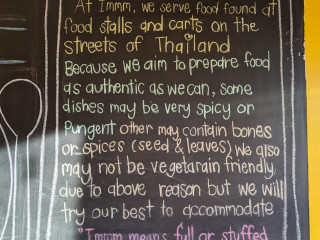 At Immm, we serve food found at
food stalls and carts on the
streets of Thailand
Because we aim to prepare food
as authentic as we can, some
dishes may be very spicy or
Pungent other may contain bones
or spices (seed & leaves) we also
may not be vegetarain friendly
due to above reason but we will
try our best to accommodate
"Immm means full or stuffed